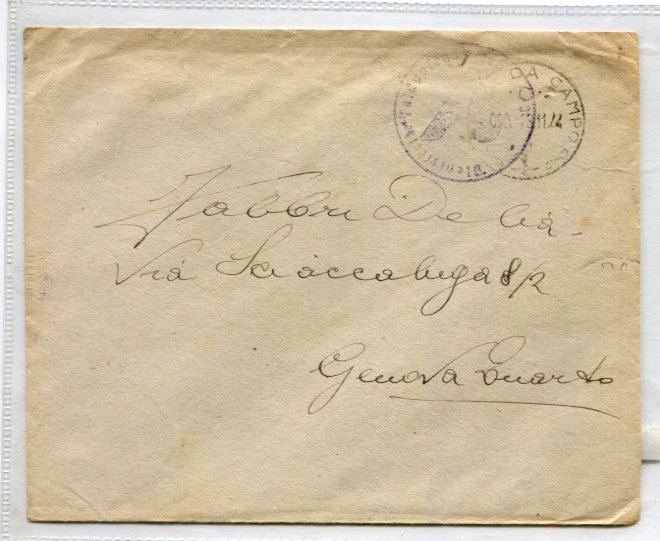 DA CAMPO
11.44
Fabbri Delia
Via Sciaccaluga 8/2
Genova Quarto